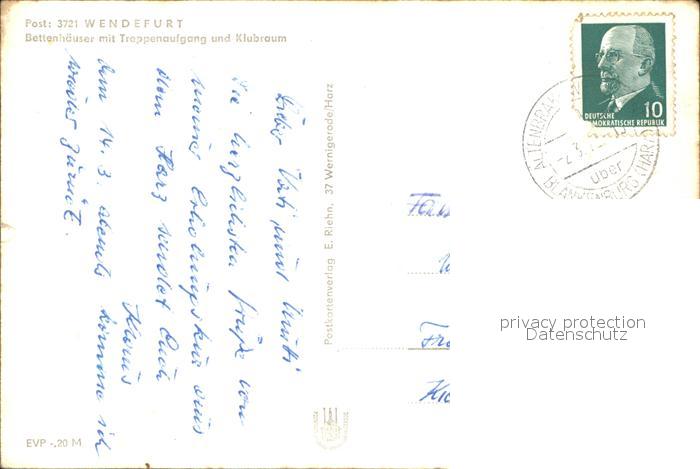 Post: 3721 WENDEFURT
Bettenhäuser mit Treppenaufgang und Klubraum
Liebe Vati und Mutti
die herzlichsten Grüße von
meiner Erholungskur aus
dem Harz sendet Euch
Klaus
Am 14. 3. abends komme ich
wieder zurück.
Postkartenverlag E. Riehn, 37 Wernigerode/Harz
EVP -,20 M
10
DEUTSCHE
DEMOKRATISCHE REPUBLIK
ALTENBRAK
über
BLANKENBURG (HARZ)
Fam
Kl
privacy protection
Datenschutz